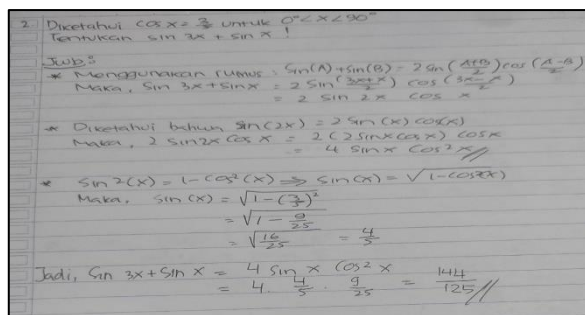 2 Diketahui cos x = 3/5 untuk 0° < x < 90°
Tentukan sin 3x + sin x !
Jwb :
* Menggunakan rumus : Sin(A) + Sin(B) = 2 Sin (A+B/2) cos (A-B/2)
Maka, Sin 3x + sin x = 2 Sin (3x+x/2) cos (3x-x/2)
= 2 Sin 2x cos x
* Diketahui bahwa Sin(2x) = 2 Sin (x) cos(x)
Maka, 2 Sin 2x cos x = 2 (2 Sin x cos x) cos x
= 4 Sin x Cos² x //
* Sin²(x) = 1 - Cos²(x) ⇒ Sin(x) = √1-cos²(x)
Maka, Sin (x) = √1 - (3/5)²
= √1 - 9/25
= √16/25 = 4/5
Jadi, Sin 3x + Sin x = 4 Sin x Cos² x
= 4 . 4/5 . 9/25 = 144/125 //